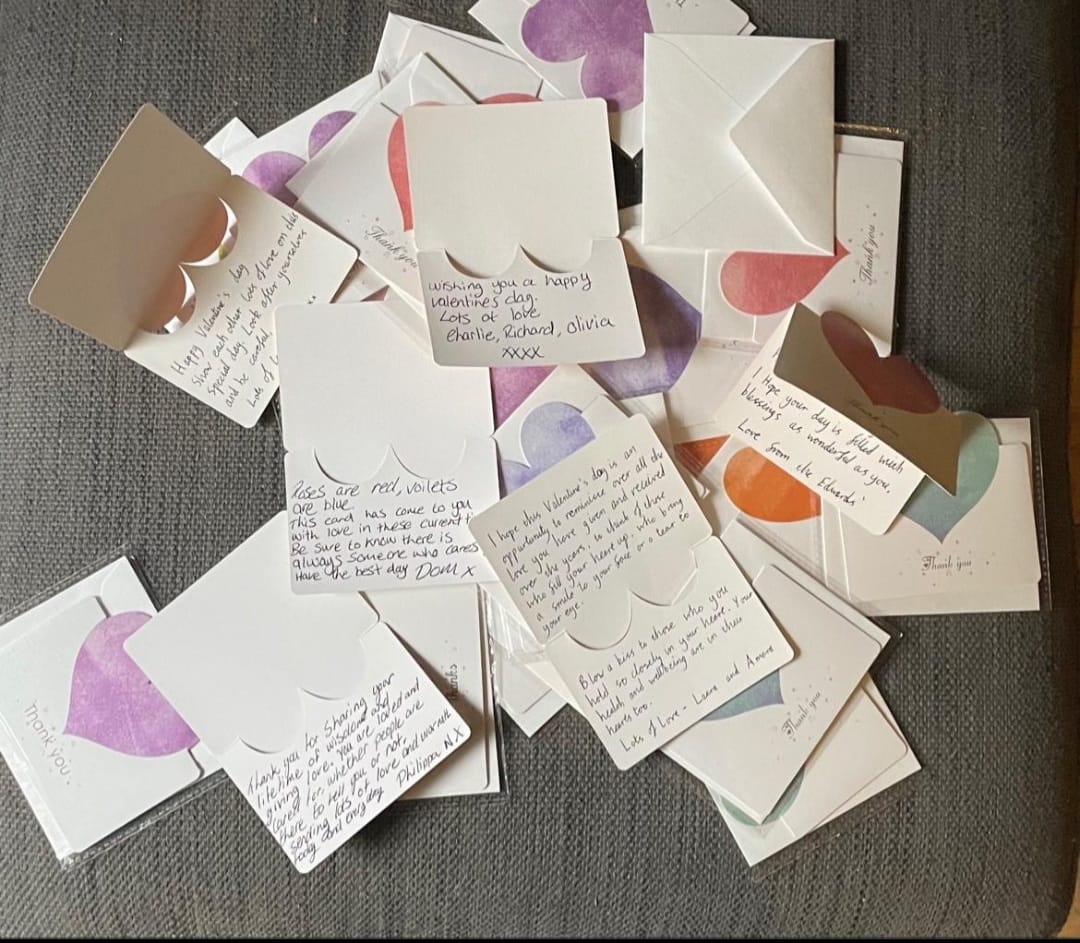 Thank you
Thank you
Happy Valentine's day
Show each other lots of love on this
special day. Look after yourselves
and be careful
Lots of
wishing you a happy
valentines day.
Lots of love
Charlie, Richard, Olivia
xxxx
I Hope your day is filled with
blessings as wonderful as you,
Love from the Edwards'
Thank you
Roses are red, voilets
are blue
This card has come to you
with love in these current
Be sure to know there is
always someone who cares
Have the best day Dom x
I hope this Valentine's day is an
oppurtunity to reminisce over all the
love you have given and received
over the years, to think of those
who fill your heart up, who bring
a smile to your face or a tear to
your eye.
Blow a kiss to those who you
hold so closely in your heart. Your
health and wellbeing are in their
hearts too.
Lots of Love - Laura and
Thank you
Thank you.
Thanks
Thank you for sharing your
lifetime of wisdom and
giving love. You are loved and
cared for, whether people are
there to tell you or not.
Sending lots of love and warmth
today and every day Philippa N X